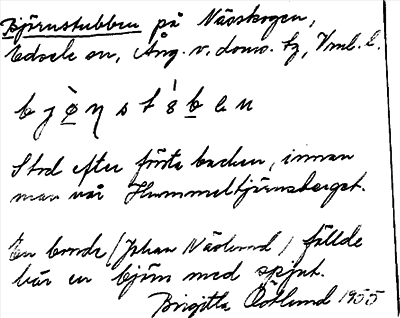 Björnstubben på Nässkogen,
Edsele sn, Ång. v. doms. tg, Vnrl. l.
b j ö̀ ŋ s t 's b e n
Stod efter första backen, innan
man når Hummeltjärnsberget.
En bonde (Johan Näslund) fällde
här en björn med spjut.
Birgitta Östlund 1955